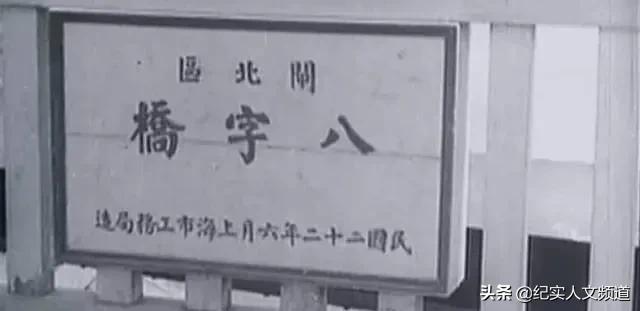 閘北區
八字橋
民國二十二年六月上海市工務局造
头条 @纪实人文频道